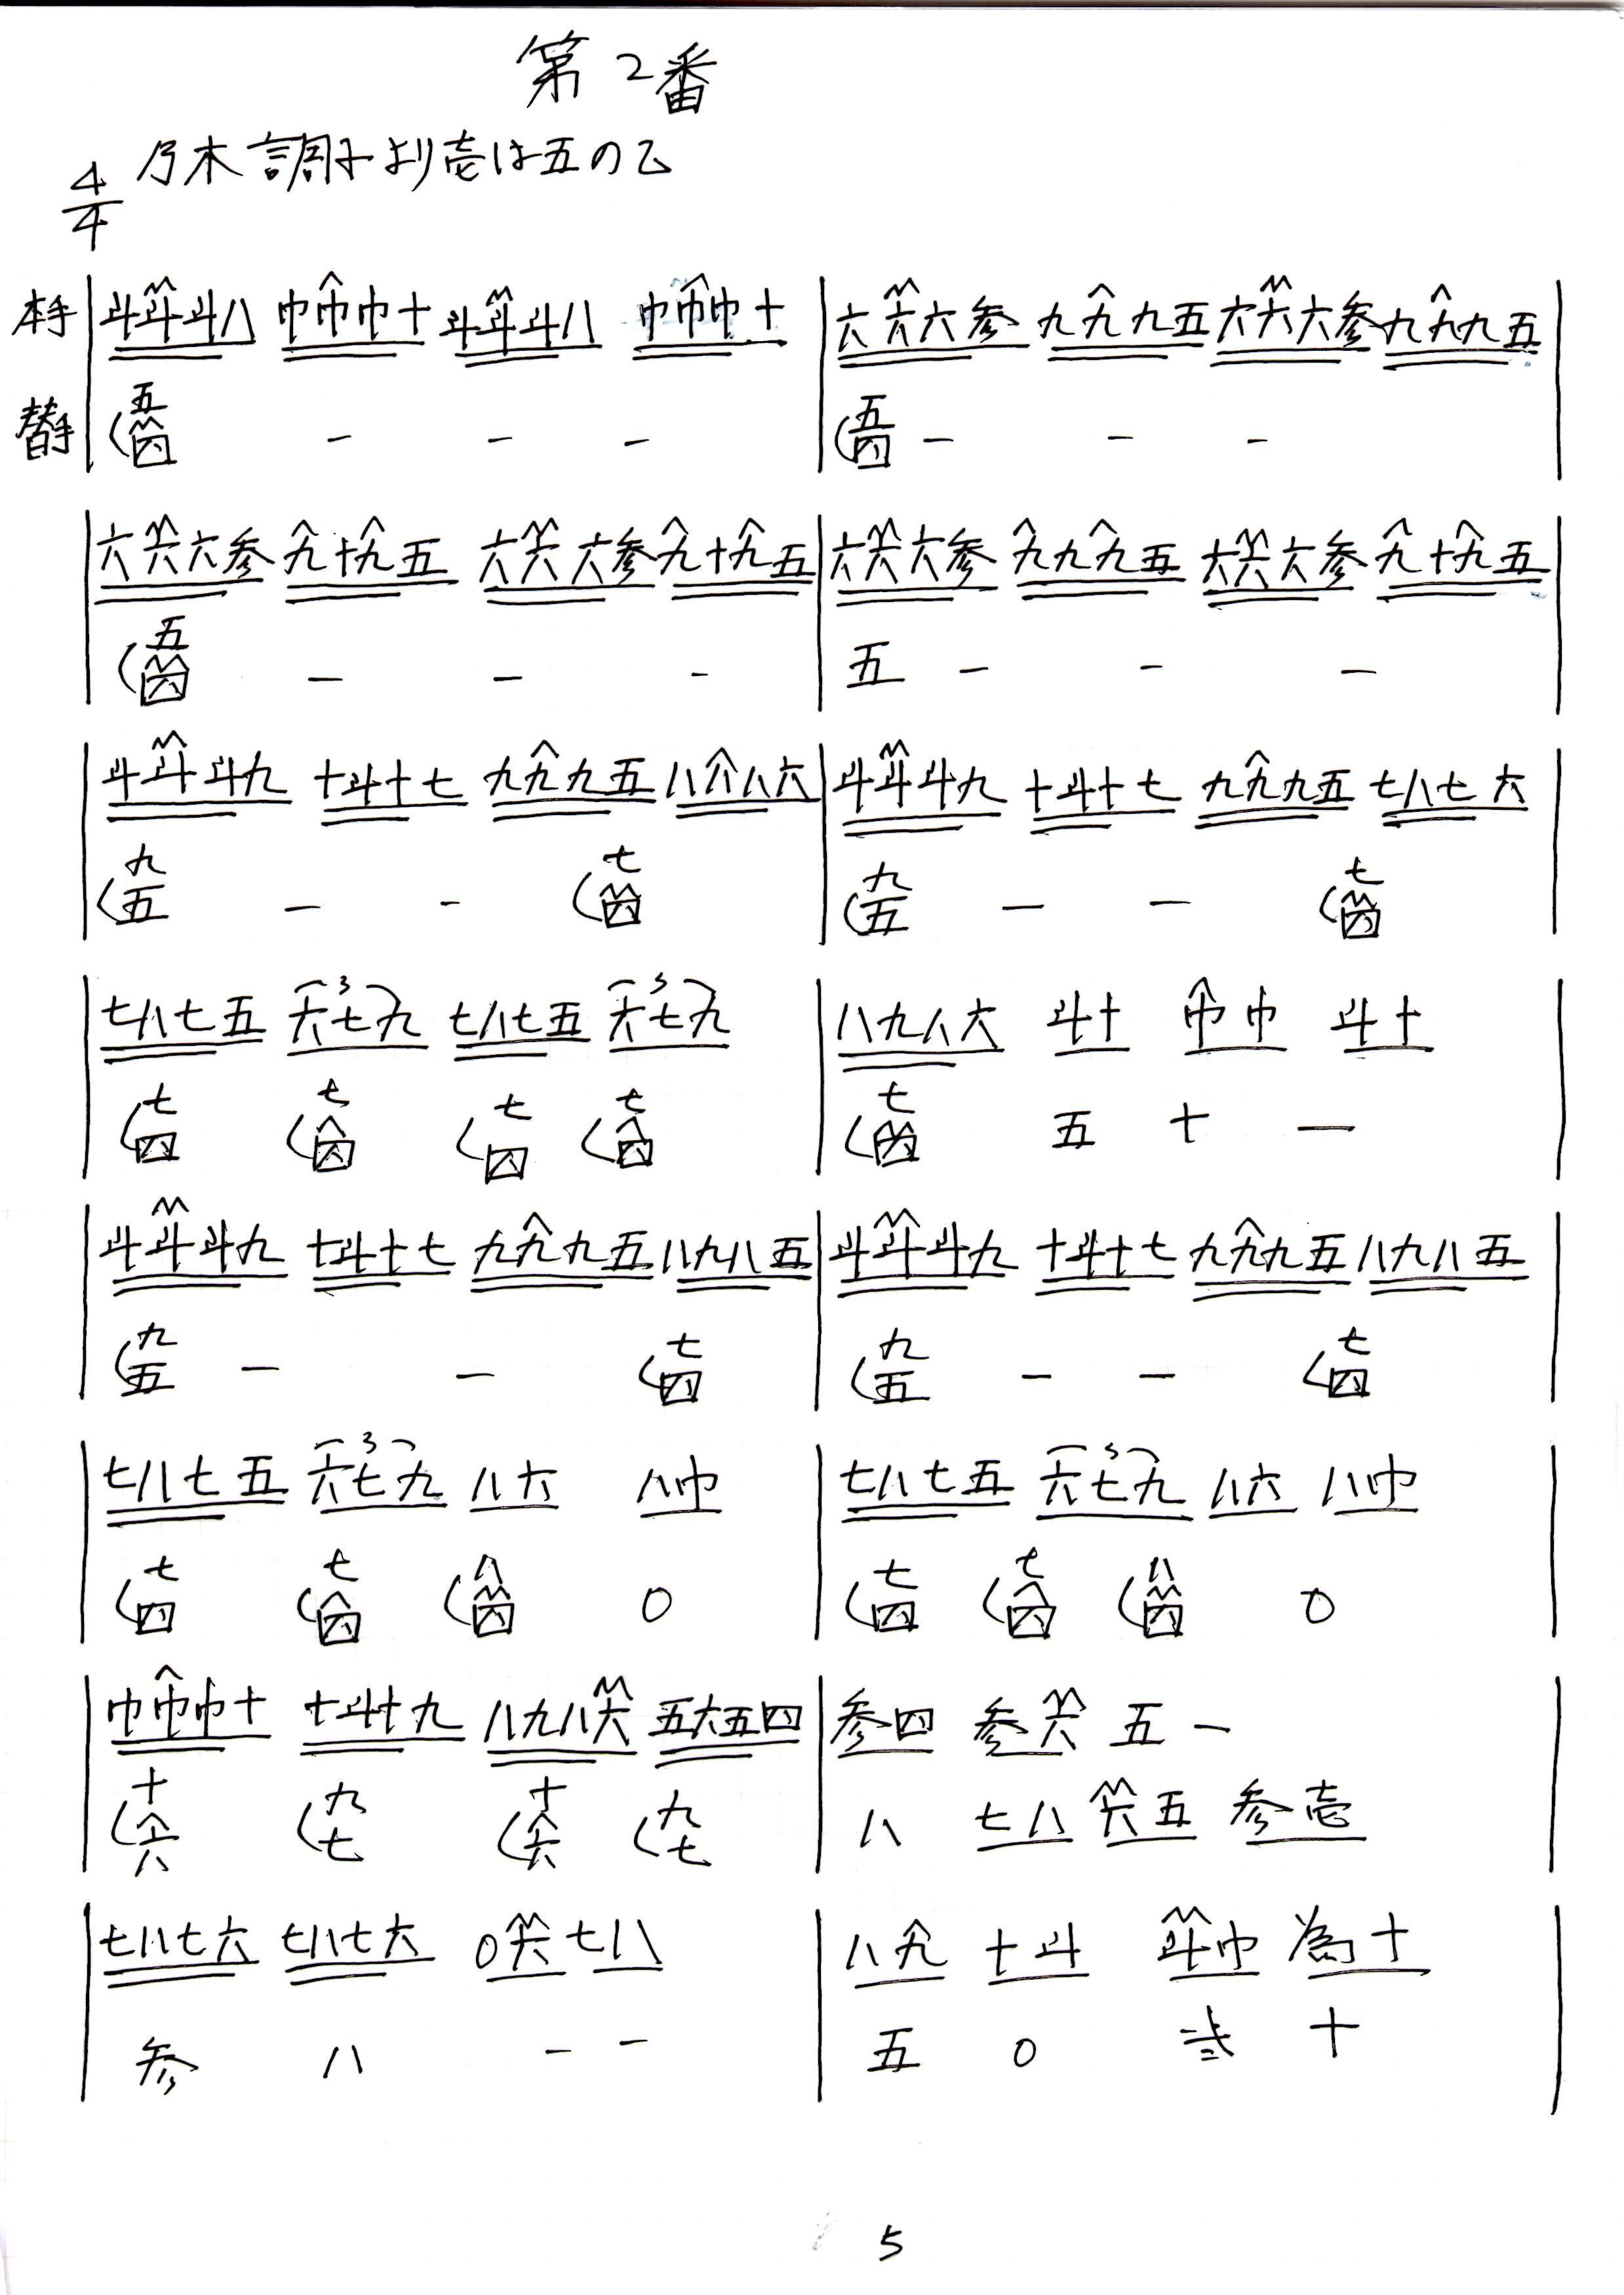 第2番
4/4 乃木調子より壱は五の乙
本手 斗斗斗八 巾巾巾十 斗斗斗八 巾巾巾十 六六六参 九九九五 六六六参 九九九五
替手 五四 - - - 五四 - - -
六六六参 九十九五 六六六参 九十九五 六六六参 九九九五 六六六参 九十九五
五四 - - - 五 - - -
斗斗斗九 十斗十七 九九九五 八八八六 斗斗斗九 十斗十七 九九九五 七八七六
九五 - - 七四 九五 - - 七四
七八七五 3 六七九 七八七五 3 六七九 八九八六 斗十 巾巾 斗十
七四 七四 七四 七四 七四 五 十 -
斗斗斗九 十斗十七 九九九五 八九八五 斗斗斗九 十斗十七 九九九五 八九八五
九五 - - 七四 九五 - - 七四
七八七五 3 六七九 八六 八巾 七八七五 3 六七九 八六 八巾
七四 七四 八四 0 七四 七四 八四 0
巾巾巾十 十斗十九 八九八六 五六五四 参四 参六 五 -
十六八 九七 十六 九七 八 七八 六五 参壱
七八七六 七八七六 0六 七八 八九 十斗 斗巾 為十
参 八 - - 五 0 弐 十
5